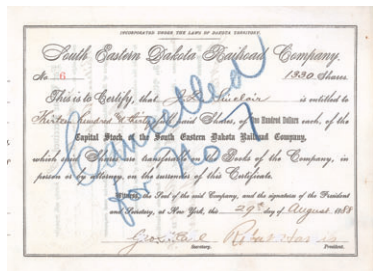 INCORPORATED UNDER THE LAWS OF DAKOTA TERRITORY.
South Eastern Dakota Railroad Company.
No 6 1330 Shares
This is to Certify, that Sinclair is entitled to
Thirteen hundred & thirty full paid Shares, of One Hundred Dollars each, of the
Capital Stock of the South Eastern Dakota Railroad Company,
which said Shares are transferable on the Books of the Company, in
person or by attorney, on the surrender of this Certificate.
Witness, the Seal of the said Company, and the signature of the President
and Secretary, at New York, this 29th day of August 1888
Secretary. President.
Cancelled
for No 7